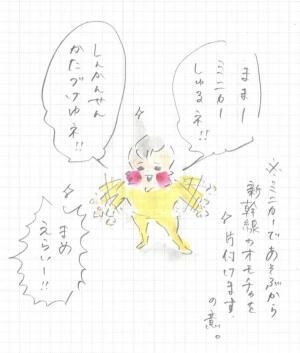 ままー
ミニカー
しゅるネ!!
しんかんせん
かたづけゆネ!!
※ミニカーであそぶから
新幹線のオモチャを
片付けます
の意。
まめ
えらいー!!